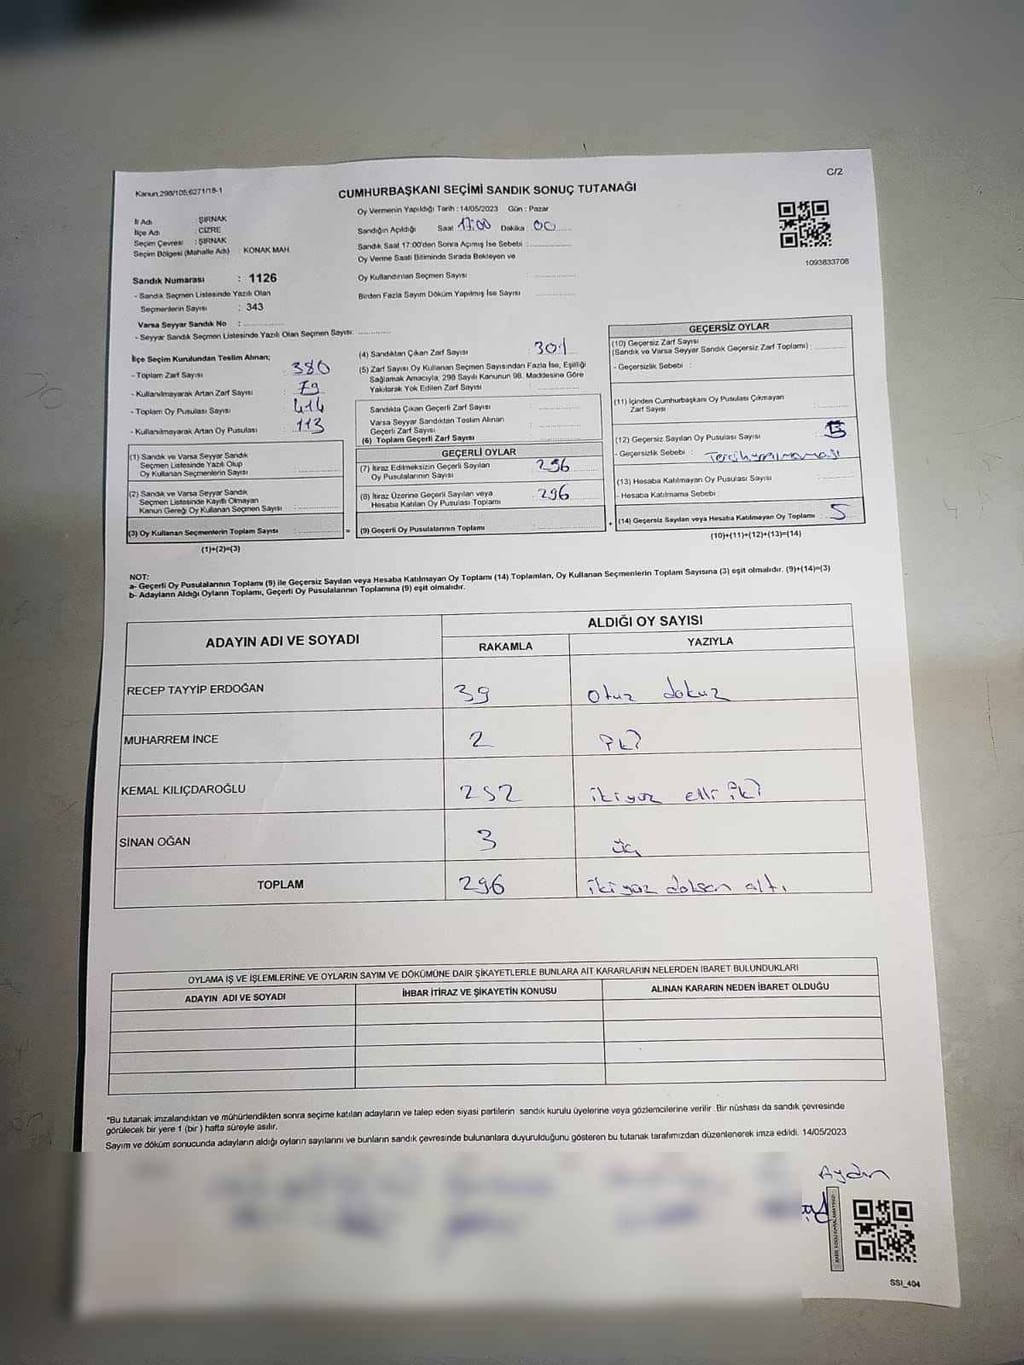 Kanun:298/105;6271/18-1
C/2
CUMHURBAŞKANI SEÇİMİ SANDIK SONUÇ TUTANAĞI
İl Adı : ŞIRNAK
İlçe Adı : CİZRE
Seçim Çevresi : ŞIRNAK
Seçim Bölgesi (Mahalle Adı) : KONAK MAH.
Oy Vermenin Yapıldığı Tarih : 14/05/2023 Gün : Pazar
Sandığın Açıldığı Saat 17:00 Dakika : 00
Sandık Saat 17:00'den Sonra Açımış İse Sebebi :
Oy Verme Saati Bitiminde Sırada Bekleyen ve
Oy Kullandırılan Seçmen Sayısı
Birden Fazla Sayım Döküm Yapılmış İse Sayısı
1093833708
Sandık Numarası : 1126
- Sandık Seçmen Listesinde Yazılı Olan
Seçmenlerin Sayısı : 343
Varsa Seyyar Sandık No :
- Seyyar Sandık Seçmen Listesinde Yazılı Olan Seçmen Sayısı:
İlçe Seçim Kurulundan Teslim Alınan;
- Toplam Zarf Sayısı : 380
- Kullanılmayarak Artan Zarf Sayısı : 79
- Toplam Oy Pusulası Sayısı : 414
- Kullanılmayarak Artan Oy Pusulası : 113
(1) Sandık ve Varsa Seyyar Sandık
Seçmen Listesinde Yazılı Olup
Oy Kullanan Seçmenlerin Sayısı
(2) Sandık ve Varsa Seyyar Sandık
Seçmen Listesinde Kayıtlı Olmayan
Kanun Gereği Oy Kullanan Seçmen Sayısı
(3) Oy Kullanan Seçmenlerin Toplam Sayısı :
(1)+(2)=(3)
(4) Sandıktan Çıkan Zarf Sayısı : 301
(5) Zarf Sayısı Oy Kullanan Seçmen Sayısından Fazla İse, Eşitliği
Sağlamak Amacıyla, 298 Sayılı Kanunun 98. Maddesine Göre
Yakılarak Yok Edilen Zarf Sayısı
Sandıkta Çıkan Geçerli Zarf Sayısı :
Varsa Seyyar Sandıktan Teslim Alınan
Geçerli Zarf Sayısı
(6) Toplam Geçerli Zarf Sayısı
GEÇERLİ OYLAR
(7) İtiraz Edilmeksizin Geçerli Sayılan
Oy Pusulalarının Sayısı : 296
(8) İtiraz Üzerine Geçerli Sayılan veya
Hesaba Katılan Oy Pusulası Toplamı : 296
= (9) Geçerli Oy Pusulalarının Toplamı
GEÇERSİZ OYLAR
(10) Geçersiz Zarf Sayısı
(Sandık ve Varsa Seyyar Sandık Geçersiz Zarf Toplamı) :
- Geçersizlik Sebebi :
(11) İçinden Cumhurbaşkanı Oy Pusulası Çıkmayan
Zarf Sayısı
(12) Geçersiz Sayılan Oy Pusulası Sayısı : 5
- Geçersizlik Sebebi :
(13) Hesaba Katılmayan Oy Pusulası Sayısı
- Hesaba Katılmama Sebebi
+ (14) Geçersiz Sayılan veya Hesaba Katılmayan Oy Toplamı : 5
(10)+(11)+(12)+(13)=(14)
NOT:
a- Geçerli Oy Pusulalarının Toplamı (9) ile Geçersiz Sayılan veya Hesaba Katılmayan Oy Toplamı (14) Toplamları, Oy Kullanan Seçmenlerin Toplam Sayısına (3) eşit olmalıdır. (9)+(14)=(3)
b- Adayların Aldığı Oyların Toplamı, Geçerli Oy Pusulalarının Toplamına (9) eşit olmalıdır.
ADAYIN ADI VE SOYADI
ALDIĞI OY SAYISI
RAKAMLA YAZIYLA
RECEP TAYYİP ERDOĞAN 39 otuz dokuz
MUHARREM İNCE 2 iki
KEMAL KILIÇDAROĞLU 252 ikiyüz elli iki
SİNAN OĞAN 3 üç
TOPLAM 296 ikiyüz doksan altı
OYLAMA İŞ VE İŞLEMLERİNE VE OYLARIN SAYIM VE DÖKÜMÜNE DAİR ŞİKAYETLERLE BUNLARA AİT KARARLARIN NELERDEN İBARET BULUNDUKLARI
ADAYIN ADI VE SOYADI İHBAR İTİRAZ VE ŞİKAYETİN KONUSU ALINAN KARARIN NEDEN İBARET OLDUĞU
*Bu tutanak imzalandıktan ve mühürlendikten sonra seçime katılan adayların ve talep eden siyasi partilerin sandık kurulu üyelerine veya gözlemcilerine verilir. Bir nüshası da sandık çevresinde
görülecek bir yere 1 (bir ) hafta süreyle asılır.
Sayım ve döküm sonucunda adayların aldığı oyların sayılarını ve bunların sandık çevresinde bulunanlara duyurulduğunu gösteren bu tutanak tarafımızdan düzenlenerek imza edildi. 14/05/2023
Aydın
SSI_404